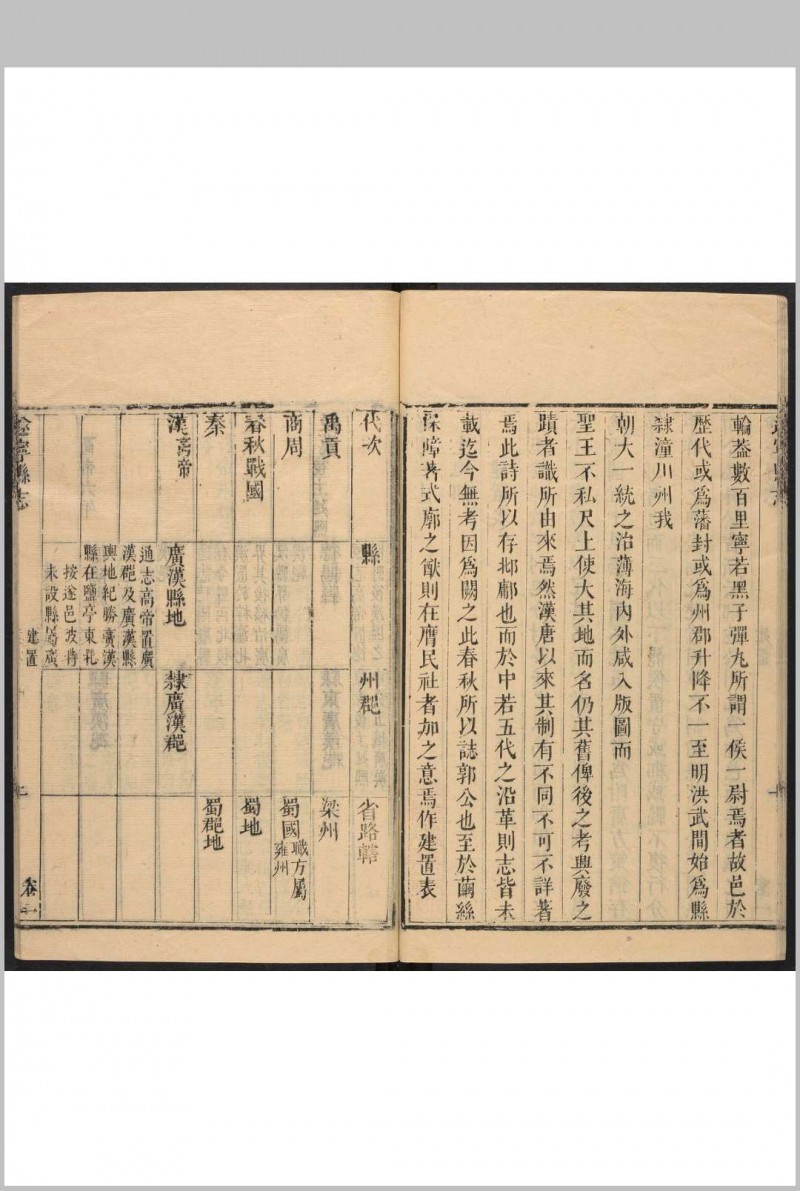 輪葢數百里寧若黑子彈丸所謂一侯一尉焉者故邑於
歷代或爲藩封或爲州郡升降不一至明洪武間始爲縣
隸潼川州我
朝大一統之治薄海內外咸入版圖而
聖王不私尺土使大其地而名仍其舊俾後之考興廢之
蹟者識所由來焉然漢唐以來其制有不同不可不詳著
焉此詩所以存邶鄘也而於中若五代之沿革則志皆未
載迄今無考因爲闕之此春秋所以誌郭公也至於繭絲
保障著式廓之猷則在膺民社者加之意焉作建置表
代次 縣 州郡 省路轄
禹貢 梁州
商周 蜀國 職方屬雍州
春秋戰國 蜀地
秦 蜀郡地
漢高帝 廣漢縣地 隸廣漢郡
通志高帝置廣
漢郡及廣漢縣
輿地紀勝廣漢
縣在鹽亭東北
按遂邑彼時
未設縣屬廣
遂寧縣志 建置 卷一